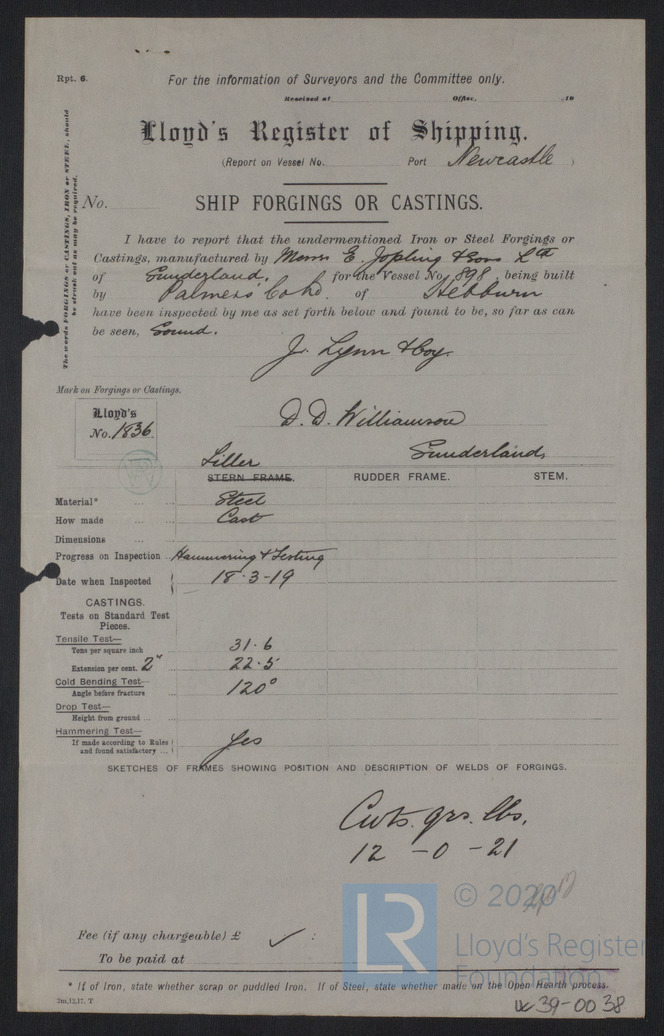 Rpt. 6.
For the information of Surveyors and the Committee only.
Received at Office, 19
Lloyd's Register of Shipping.
(Report on Vessel No. Port Newcastle )
No. SHIP FORGINGS OR CASTINGS.
The words FORGINGS or CASTINGS, IRON or STEEL, should
be struck out as may be required.
I have to report that the undermentioned Iron or Steel Forgings or
Castings, manufactured by Messrs E. Jopling & Sons Ltd
of Sunderland, for the Vessel No. 898, being built
by Palmers' Co Ld. of Hebburn
have been inspected by me as set forth below and found to be, so far as can
be seen, Sound.
J. Lynn & Coy.
Mark on Forgings or Castings.
Lloyd's
No. 1836.
D. D. Williamson
Sunderland,
Tiller
STERN FRAME. RUDDER FRAME. STEM.
Material* ... ... Steel
How made ... ... Cast
Dimensions ... ...
Progress on Inspection Hammering & Testing
Date when Inspected 18-3-19
CASTINGS.
Tests on Standard Test
Pieces.
Tensile Test—
Tons per square inch 31.6
Extension per cent. 2" ... 22.5
Cold Bending Test—
Angle before fracture ... 120°
Drop Test—
Height from ground ... ...
Hammering Test—
If made according to Rules
and found satisfactory ... Yes
SKETCHES OF FRAMES SHOWING POSITION AND DESCRIPTION OF WELDS OF FORGINGS.
Cwts. qrs. lbs.
12 -0 -21
© 2020
Lloyd's Register
Foundation
LR
Fee (if any chargeable) £ ✓ :
To be paid at
* If of Iron, state whether scrap or puddled Iron. If of Steel, state whether made on the Open Hearth process.
2m,12,17. T
39-0038